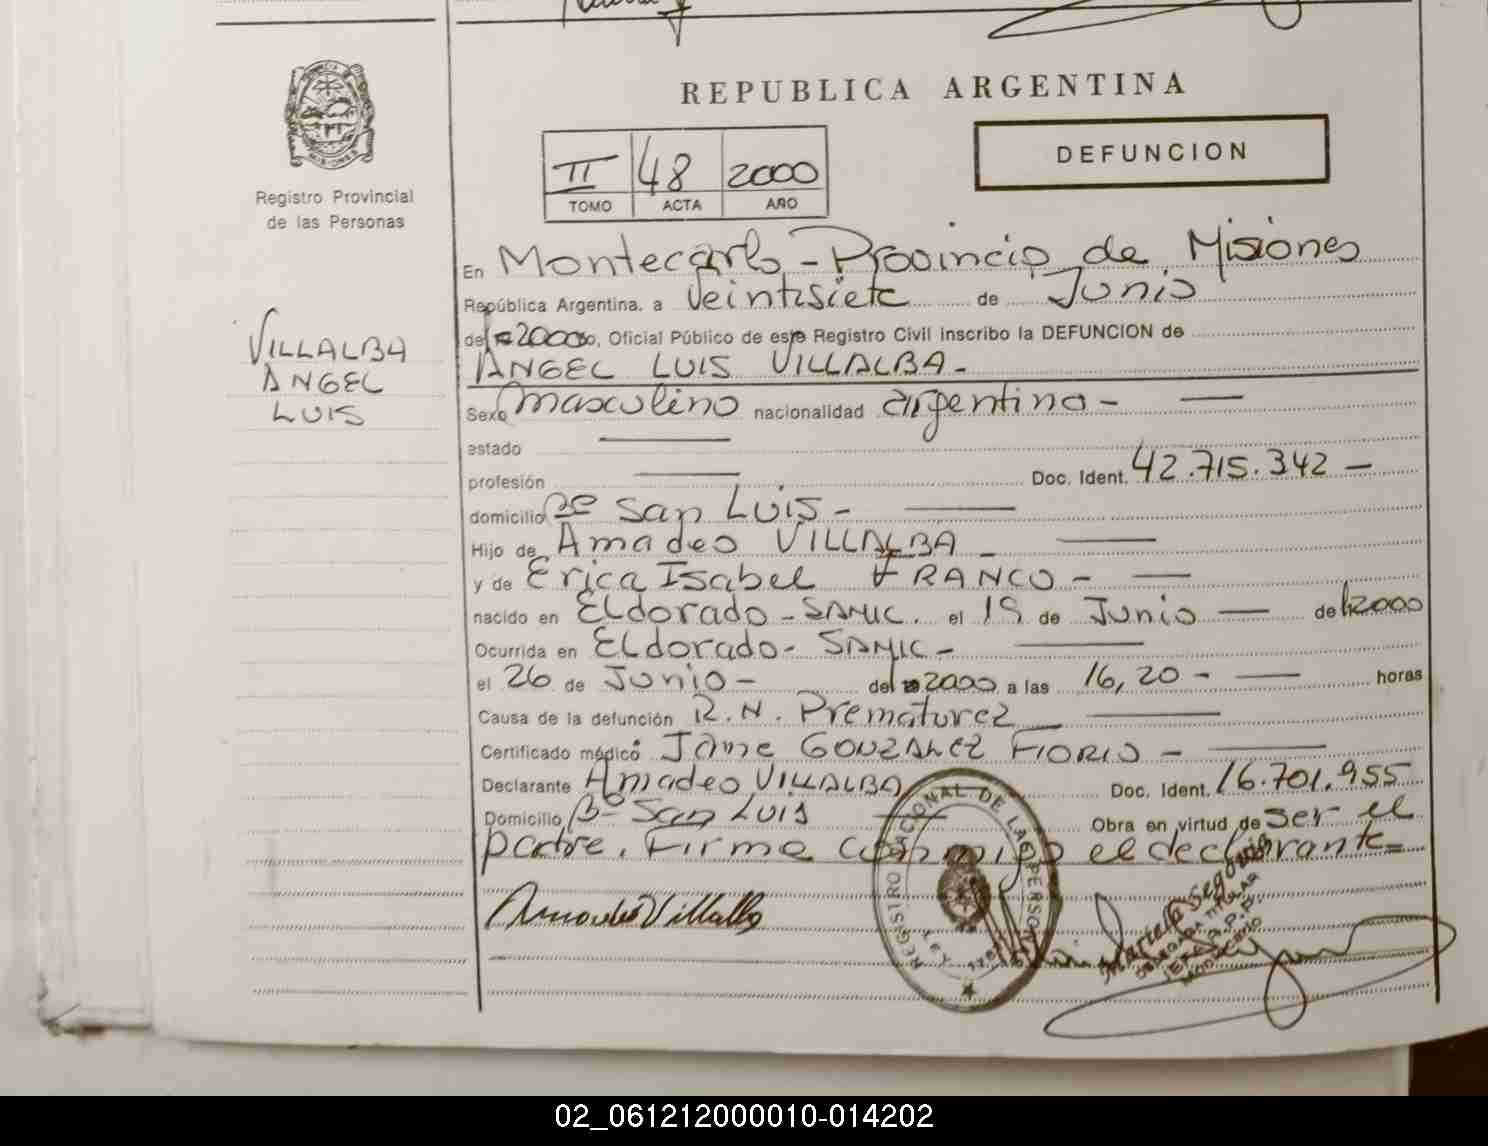 REPUBLICA ARGENTINA
DEFUNCION
II 48 2000
TOMO ACTA AÑO
MISIONES
Registro Provincial
de las Personas
VILLALBA
ANGEL
LUIS
En Montecarlo - Provincia de Misiones
República Argentina, a Veintisiete de Junio
del 2000, Oficial Público de este Registro Civil inscribo la DEFUNCION de
ANGEL LUIS VILLALBA -
Sexo Masculino nacionalidad argentino -
estado
profesión Doc. Ident. 42.715.342 -
domicilio Bº San Luis -
Hijo de Amadeo VILLALBA -
y de Erica Isabel FRANCO -
nacido en Eldorado - SAMIC. el 19 de Junio de 2000
Ocurrida en Eldorado - SAMIC -
el 26 de Junio - del 2000 a las 16,20 - horas
Causa de la defunción R.N. Prematurez
Certificado médico Jaime GONZALEZ FIORIO -
Declarante Amadeo VILLALBA Doc. Ident. 16.701.955
Domicilio Bº San Luis Obra en virtud de ser el
padre. Firma conmigo el declarante
Amadeo Villalba
REGISTRO NACIONAL DE LAS PERSONAS
Mariela Segovia
DELEGADA TITULAR
02_061212000010-014202